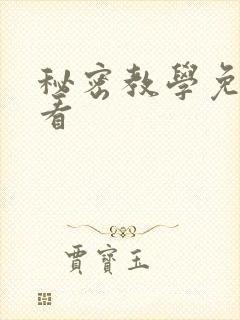 秘密教學免
看
賈寶玉